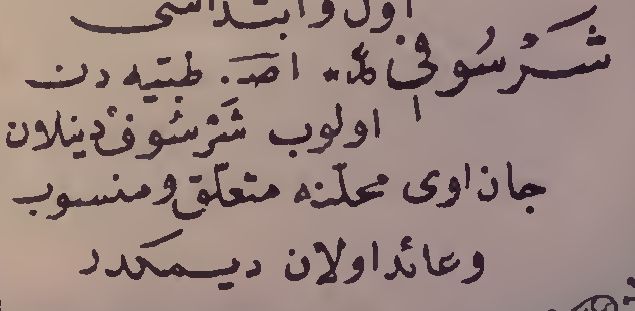 اول و ابتداسی
شَرْسُوفی اصـ. طبیه دن
اولوب شَرْسُوف دینلان
جان اوی محلنه متعلّق و منسوب
و عائد اولان دیمکدر